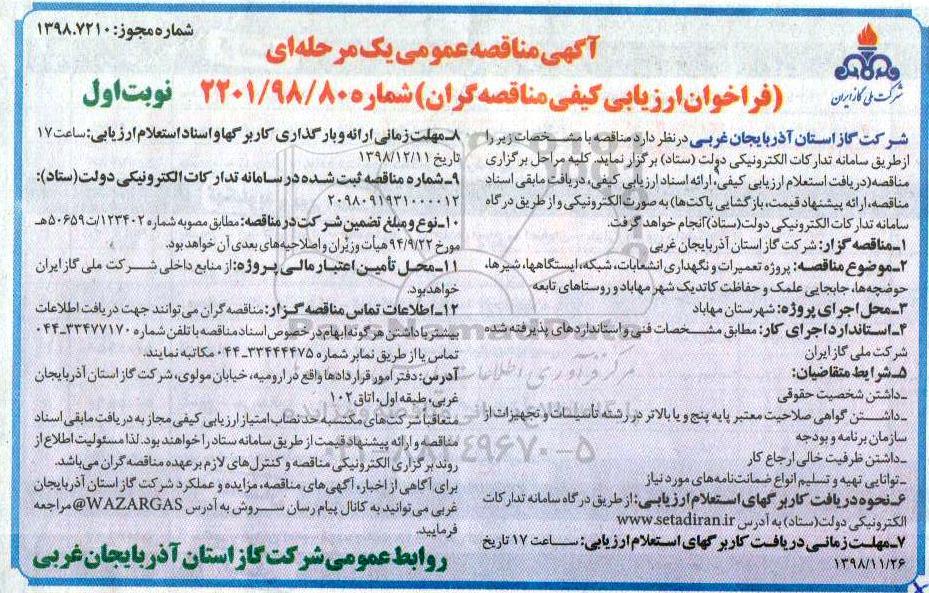 شماره مجوز: ۱۳۹۸.۷۲۱۰
آگهی مناقصه عمومی یک مرحله‌ای
(فراخوان ارزیابی کیفی مناقصه گران) شماره ۲۲۰۱/۹۸/۸۰ نوبت اول
شرکت ملی گاز ایران
شرکت گاز استان آذربایجان غربی در نظر دارد مناقصه با مشخصات زیر را
از طریق سامانه تدارکات الکترونیکی دولت (ستاد) برگزار نماید. کلیه مراحل برگزاری
مناقصه (دریافت استعلام ارزیابی کیفی، ارائه اسناد ارزیابی کیفی، دریافت مابقی اسناد
مناقصه، ارائه پیشنهاد قیمت، بازگشایی پاکت‌ها) به صورت الکترونیکی و از طریق درگاه
سامانه تدارکات الکترونیکی دولت (ستاد) انجام خواهد گرفت.
۱ـ مناقصه گزار: شرکت گاز استان آذربایجان غربی
۲ـ موضوع مناقصه: پروژه تعمیرات و نگهداری انشعابات، شبکه، ایستگاهها، شیرها،
حوضچه‌ها، جابجایی علمک و حفاظت کاتدیک شهر مهاباد و روستاهای تابعه
۳ـ محل اجرای پروژه: شهرستان مهاباد
۴ـ استاندارد اجرای کار: مطابق مشخصات فنی و استانداردهای پذیرفته شده
شرکت ملی گاز ایران
۵ـ شرایط متقاضیان:
ـ داشتن شخصیت حقوقی
ـ داشتن گواهی صلاحیت معتبر پایه پنج و یا بالاتر در رشته تأسیسات و تجهیزات از
سازمان برنامه و بودجه
ـ داشتن ظرفیت خالی ارجاع کار
ـ توانایی تهیه و تسلیم انواع ضمانت‌نامه‌های مورد نیاز
۶ـ نحوه دریافت کاربرگهای استعلام ارزیابی: از طریق درگاه سامانه تدارکات
الکترونیکی دولت (ستاد) به آدرس www.setadiran.ir
۷ـ مهلت زمانی دریافت کاربرگهای استعلام ارزیابی: ساعت ۱۷ تاریخ
۱۳۹۸/۱۱/۲۶
۸ـ مهلت زمانی ارائه و بارگذاری کاربرگها و اسناد استعلام ارزیابی: ساعت ۱۷
تاریخ ۱۳۹۸/۱۲/۱۱
۹ـ شماره مناقصه ثبت شده در سامانه تدارکات الکترونیکی دولت (ستاد):
۲۰۹۸۰۹۱۹۳۱۰۰۰۰۱۲
۱۰ـ نوع و مبلغ تضمین شرکت در مناقصه: مطابق مصوبه شماره ۱۲۳۴۰۲/ت۵۰۶۵۹هـ
مورخ ۹۴/۹/۲۲ هیأت وزیران و اصلاحیه‌های بعدی آن خواهد بود.
۱۱ـ محل تأمین اعتبار مالی پروژه: از منابع داخلی شرکت ملی گاز ایران
خواهد بود.
۱۲ـ اطلاعات تماس مناقصه گزار: مناقصه گران می‌توانند جهت دریافت اطلاعات
بیشتر یا داشتن هرگونه ابهام در خصوص اسناد مناقصه با تلفن شماره ۳۳۴۷۷۱۷۰ـ۰۴۴
تماس یا از طریق نمابر شماره ۳۳۴۴۴۴۷۵ـ۰۴۴ مکاتبه نمایند.
آدرس: دفتر امور قراردادها واقع در ارومیه، خیابان مولوی، شرکت گاز استان آذربایجان
غربی، طبقه اول، اتاق ۱۰۲
متعاقبا شرکت‌های مکتسبه حد نصاب امتیاز ارزیابی کیفی مجاز به دریافت مابقی اسناد
مناقصه و ارائه پیشنهاد قیمت از طریق سامانه ستاد را خواهند بود. لذا مسئولیت اطلاع از
روند برگزاری الکترونیکی مناقصه و کنترل‌های لازم بر عهده مناقصه گران می‌باشد.
برای آگاهی از اخبار، آگهی‌های مناقصه، مزایده و عملکرد شرکت گاز استان آذربایجان
غربی می‌توانید به کانال پیام رسان سروش به آدرس WAZARGAS@ مراجعه
فرمایید.
روابط عمومی شرکت گاز استان آذربایجان غربی
ParsNamadData
۰۲۱-۸۸۳۴۹۶۷۰-۵